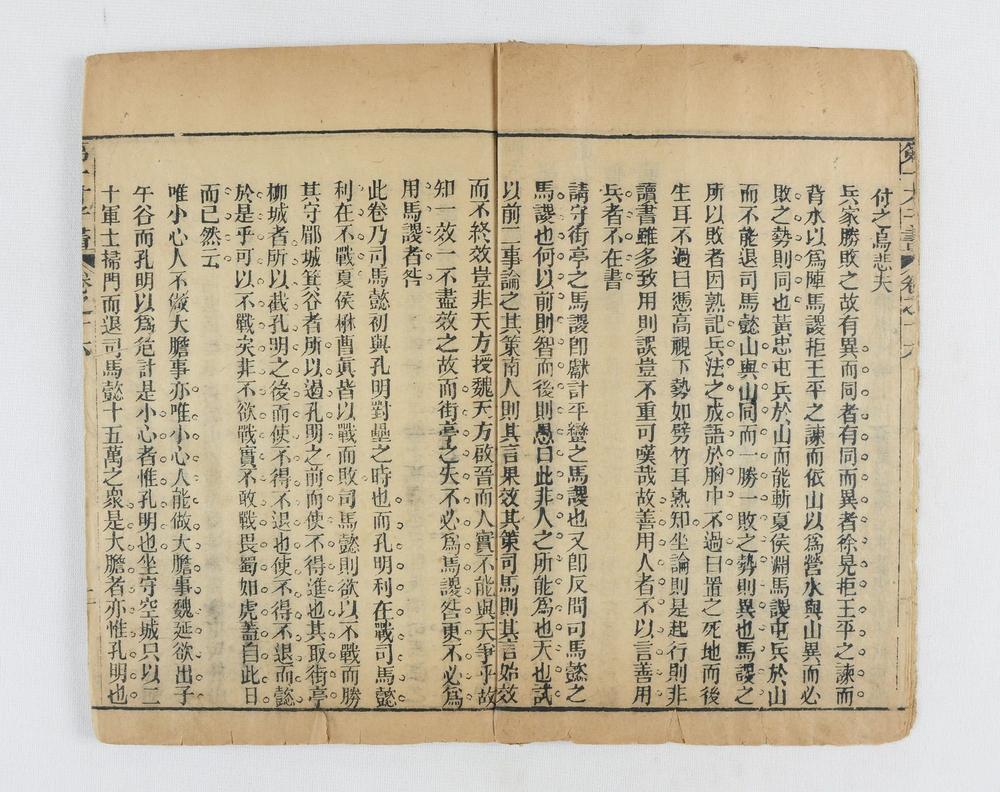 第一才子書 卷之十六
付之烏悲夫
兵家勝敗之故有異而同者有同而異者徐晃拒王平之諫而
背水以爲陣馬謖拒王平之諫而依山以爲營水與山異而必
敗之勢則同也黃忠屯兵於山而能斬夏侯淵馬謖屯兵於山
而不能退司馬懿山與山同而一勝一敗之勢則異也馬謖之
所以敗者因熟記兵法之成語於胸中不過曰置之死地而後
生耳不過曰憑高視下勢如劈竹耳孰知坐論則是起行則非
讀書雖多致用則誤豈不重可嘆哉故善用人者不以言善用
兵者不在書
請守街亭之馬謖卽獻計平蠻之馬謖也又卽反間司馬懿之
馬謖也何以前則智而後則愚曰此非人之所能爲也天也試
以前二事論之其策南人則其言果效其策司馬則其言始效
而不終效豈非天方授魏天方啟晉而人實不能與天爭乎故
知一效一不盡效之故而街亭之失不必爲馬謖咎更不必爲
用馬謖者咎
此卷乃司馬懿初與孔明對壘之時也而孔明利在戰司馬懿
利在不戰夏侯楙曹眞皆以戰而敗司馬懿則欲以不戰而勝
其守郿城箕谷者所以遏孔明之前而使不得進也其取街亭
柳城者所以截孔明之後而使不得不退也使不得不退而懿
於是乎可以不戰矣非不欲戰實不敢戰畏蜀如虎蓋自此日
而已然云
唯小心人不做大膽事亦唯小心人能做大膽事魏延欲出子
午谷而孔明以爲危計是小心者惟孔明也坐守空城只以二
十軍士掃門而退司馬懿十五萬之衆是大膽者亦惟孔明也
第一才子書 卷之十六